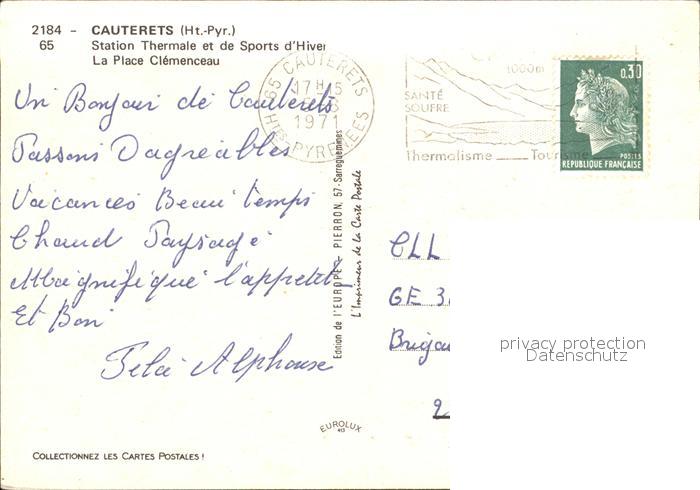 2184 - CAUTERETS (Ht.-Pyr.)
65 Station Thermale et de Sports d'Hiver
La Place Clémenceau
Un Bonjour de Cauterets
Passons Dagreables
Vacances Beau temps
Chaud Paysage
Magnifique l'appetit
Et Bon
Alphonse
65 CAUTERETS
17H
1971
HTES PYRENEES
1000m
SANTÉ
SOUFRE
Thermalisme Tourisme
0,30
POSTES
REPUBLIQUE FRANÇAISE
Edition de l'EUROPE PIERRON, 57-Sarreguemines
L'Imprimeur de la Carte Postale
CLL
GE 3
privacy protection
Datenschutz
EUROLUX
COLLECTIONNEZ LES CARTES POSTALES !